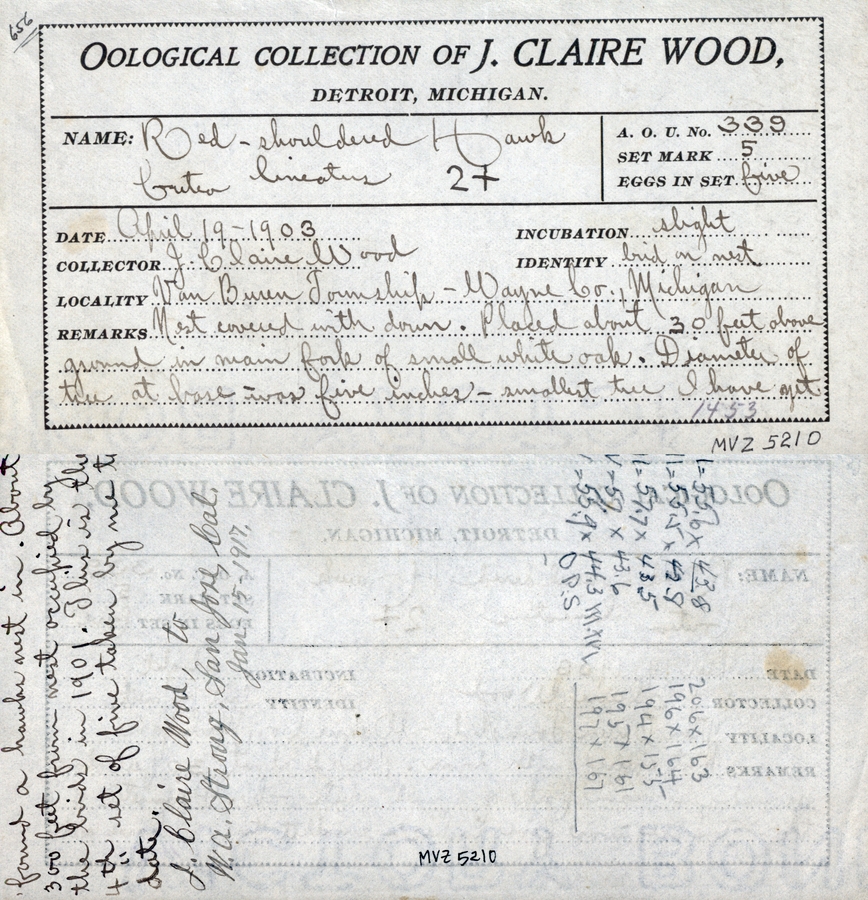 656
OOLOGICAL COLLECTION OF J. CLAIRE WOOD,
DETROIT, MICHIGAN.
NAME: Red-shouldered Hawk
buteo lineatus 27
A. O. U. No. 339
SET MARK 5
EGGS IN SET five
DATE April 19-1903
INCUBATION slight
COLLECTOR J. Claire Wood
IDENTITY bird on nest
LOCALITY Van Buren Township - Wayne Co., Michigan
REMARKS Nest covered with down. Placed about 30 feet above
ground in main fork of small white oak. Diameter of
tree at base was five inches - smallest tree I have yet
1453
MVZ 5210
found a hawks nest in. About
300 feet from nest occupied by
the birds in 1901. This is the
4th set of five taken by me to
date.
J. Claire Wood, to
W. A. Strong, San Jose, Cal
Jan. 1912.
I = 55.6 x 43.8
II = 55.5 x 42.9
III = 57.7 x 43.5
V = 57 x 43.6
= 55.9 x 44.3
O.P.S
206 x 163
196 x 164
194 x 155
195 x 161
197 x 167
MVZ 5210